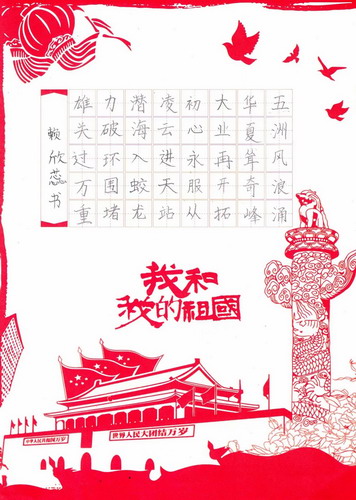 五洲风浪涌
华夏耸奇峰
大业再开拓
初心永服从
凌云进天站
潜海入蛟龙
力破环围堵
雄关过万重
赖欣蕊书
我和
我的祖國
中华人民共和国万岁
世界人民大团结万岁